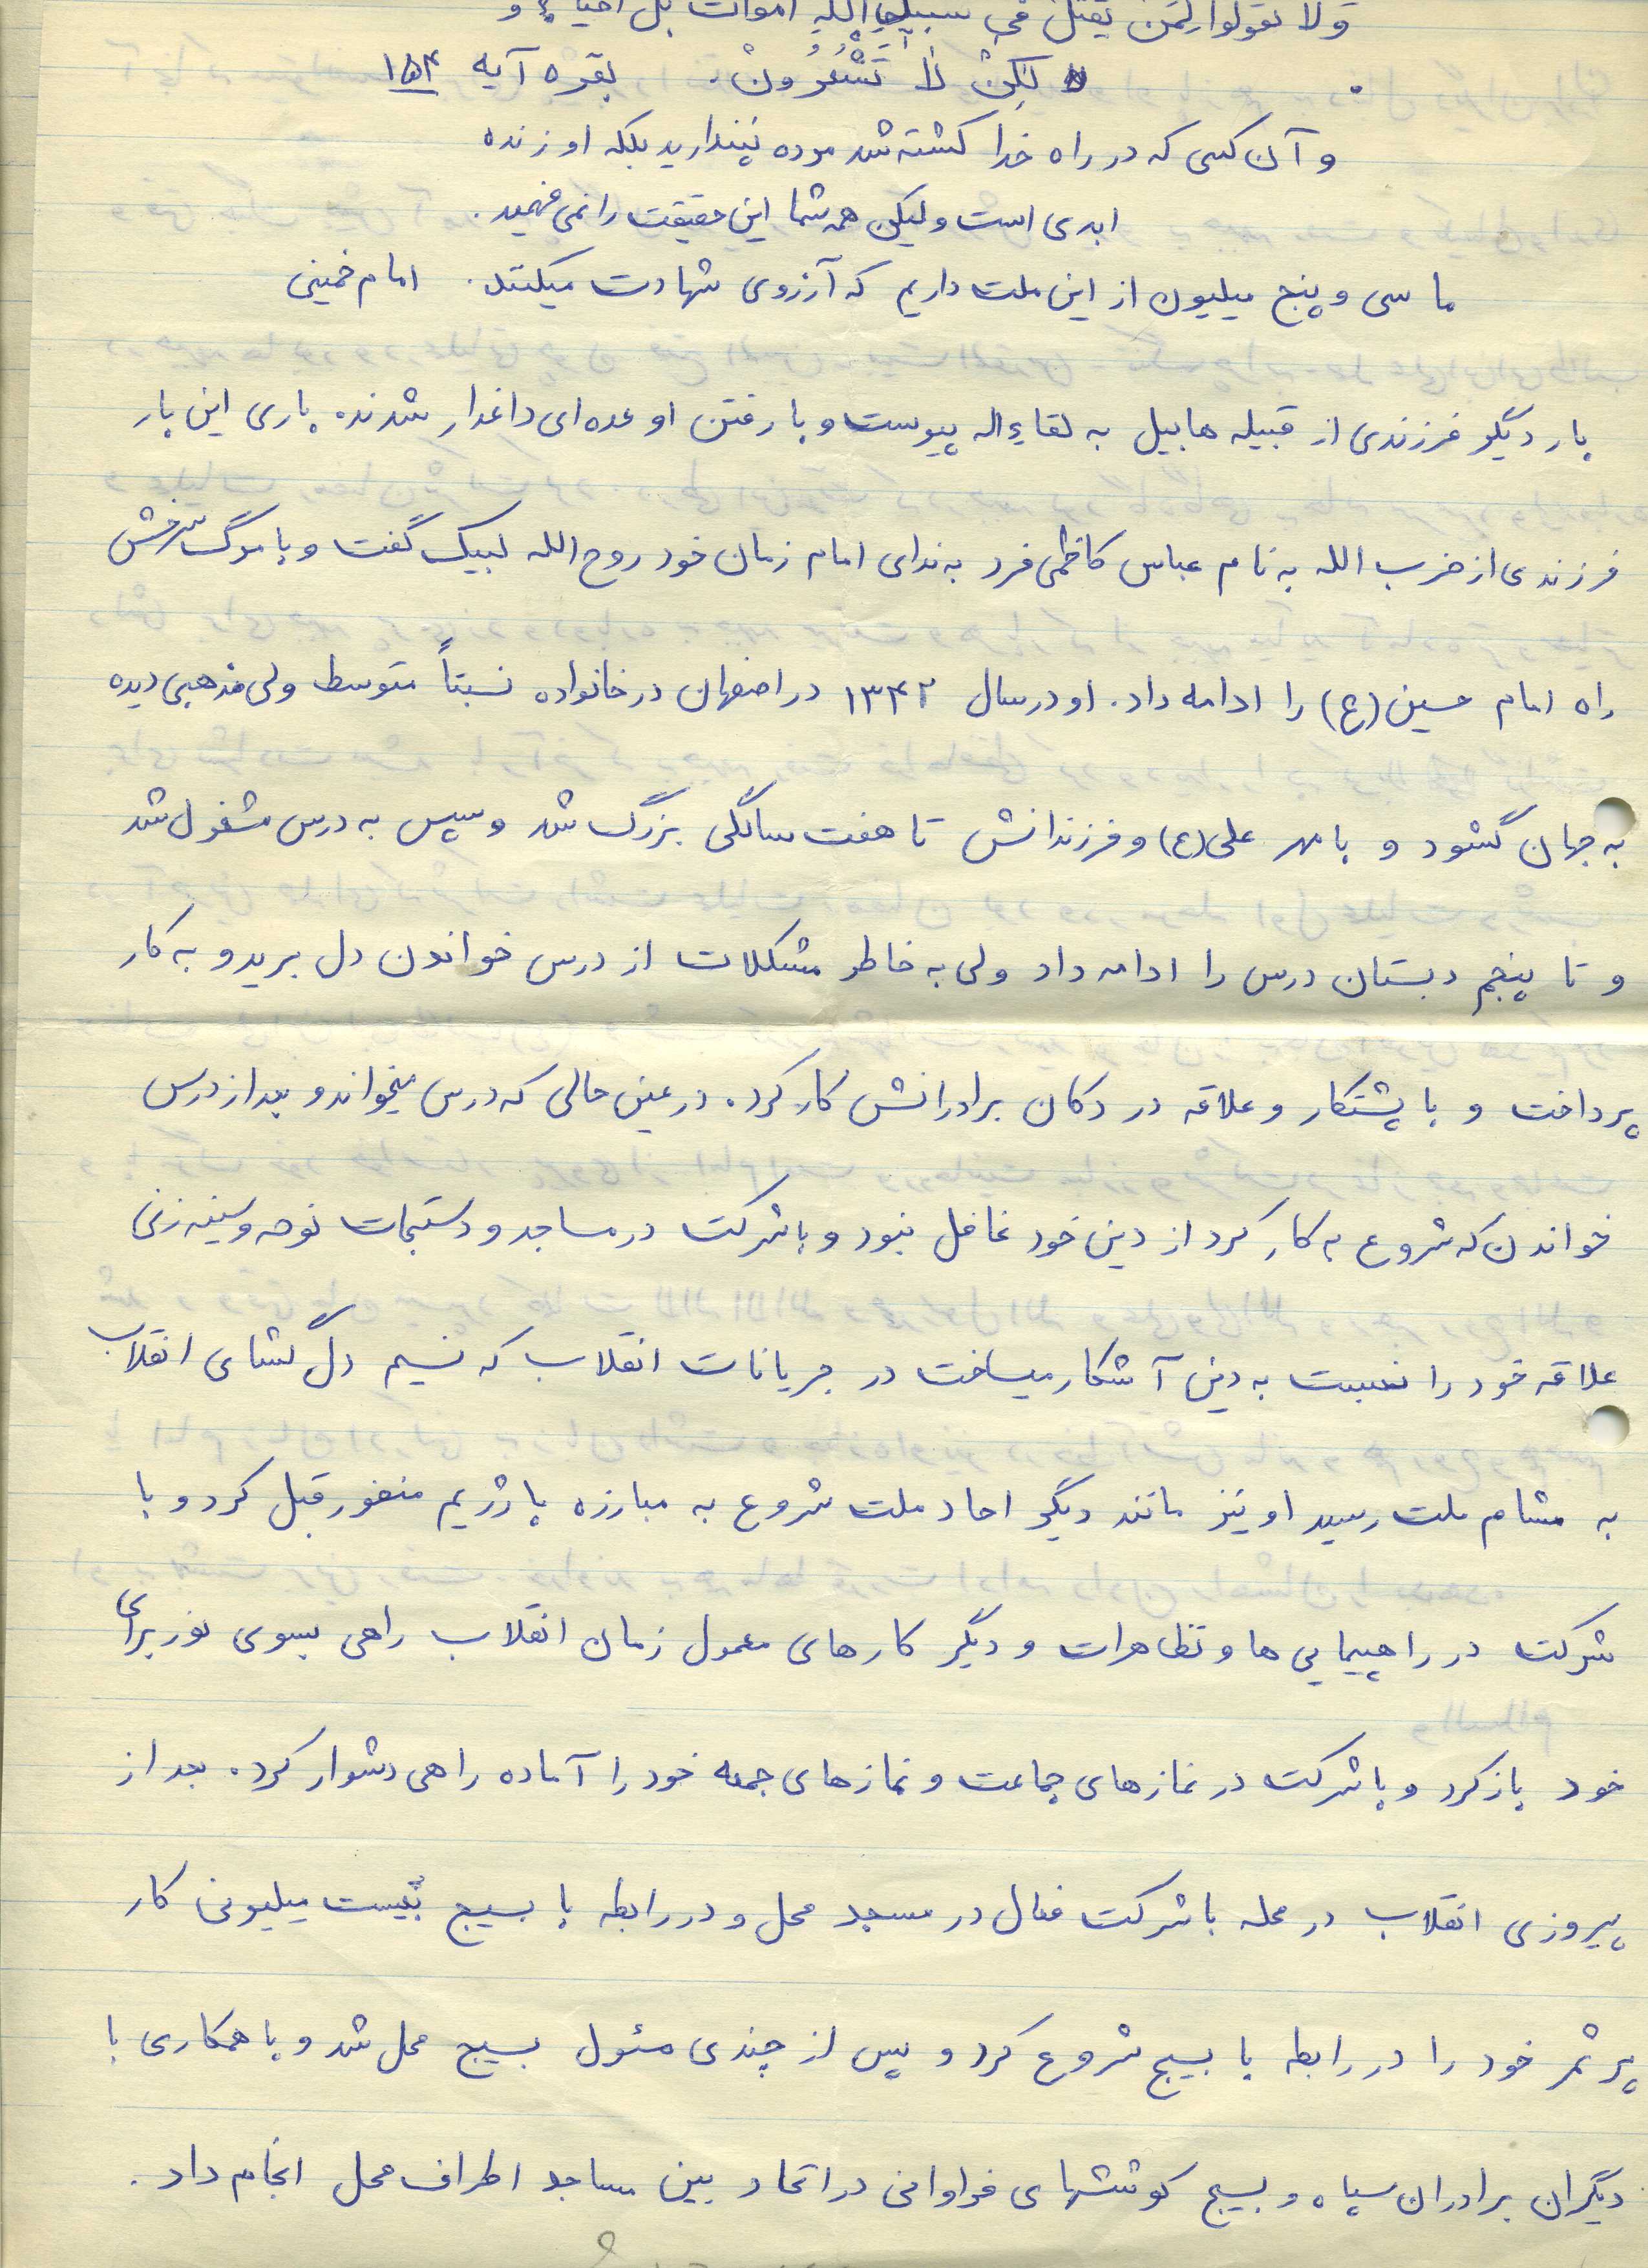 ولا تقولوا لمن یقتل فی سبیل الله اموات بل احیاء و
لکِنْ لا تَشْعُرُونْ. بقره آیه ۱۵۴
و آن کسی که در راه خدا کشته شد مرده نپندارید بلکه او زنده
ابدی است ولیکن همه شما این حقیقت را نمی فهمید.
ما سی و پنج میلیون از این ملت داریم که آرزوی شهادت میکنند. امام خمینی
بار دیگر فرزندی از قبیله هابیل به لقاءاله پیوست و با رفتن او عده ای داغدار شدند. باری این بار
فرزندی از حزب الله به نام عباس کاظمی فرد به ندای امام زمان خود روح الله لبیک گفت و با مرگ سرخش
راه امام حسین (ع) را ادامه داد. او در سال ۱۳۴۲ در اصفهان در خانواده نسبتاً متوسط ولی مذهبی دیده
به جهان گشود و با مهر علی (ع) و فرزندانش تا هفت سالگی بزرگ شد و سپس به درس مشغول شد
و تا پنجم دبستان درس را ادامه داد ولی به خاطر مشکلات از درس خواندن دل برید و به کار
پرداخت و با پشتکار و علاقه در دکان برادرانش کار کرد. در عین حالی که درس میخواند و بعد از درس
خواندن که شروع به کار کرد از دین خود غافل نبود و با شرکت در مساجد و دستجات نوحه و سینه زنی
علاقه خود را نسبت به دین آشکار میساخت در جریانات انقلاب که نسیم دل گشای انقلاب
به مشام ملت رسید او نیز مانند دیگر احاد ملت شروع به مبارزه با رژیم منفور قبل کرد و با
شرکت در راهپیمایی ها و تظاهرات و دیگر کارهای معمول زمان انقلاب راهی بسوی نور برای
خود باز کرد و با شرکت در نمازهای جماعت و نمازهای جمعه خود را آماده راهی دشوار کرد. بعد از
پیروزی انقلاب در محله با شرکت فعال در مسجد محل و در رابطه با بسیج بیست میلیونی کار
پر ثمر خود را در رابطه با بسیج شروع کرد و پس از چندی مسئول بسیج محل شد و با همکاری با
دیگران برادران سپاه و بسیج کوششهای فراوانی در اتحاد بین مساجد اطراف محل انجام داد.